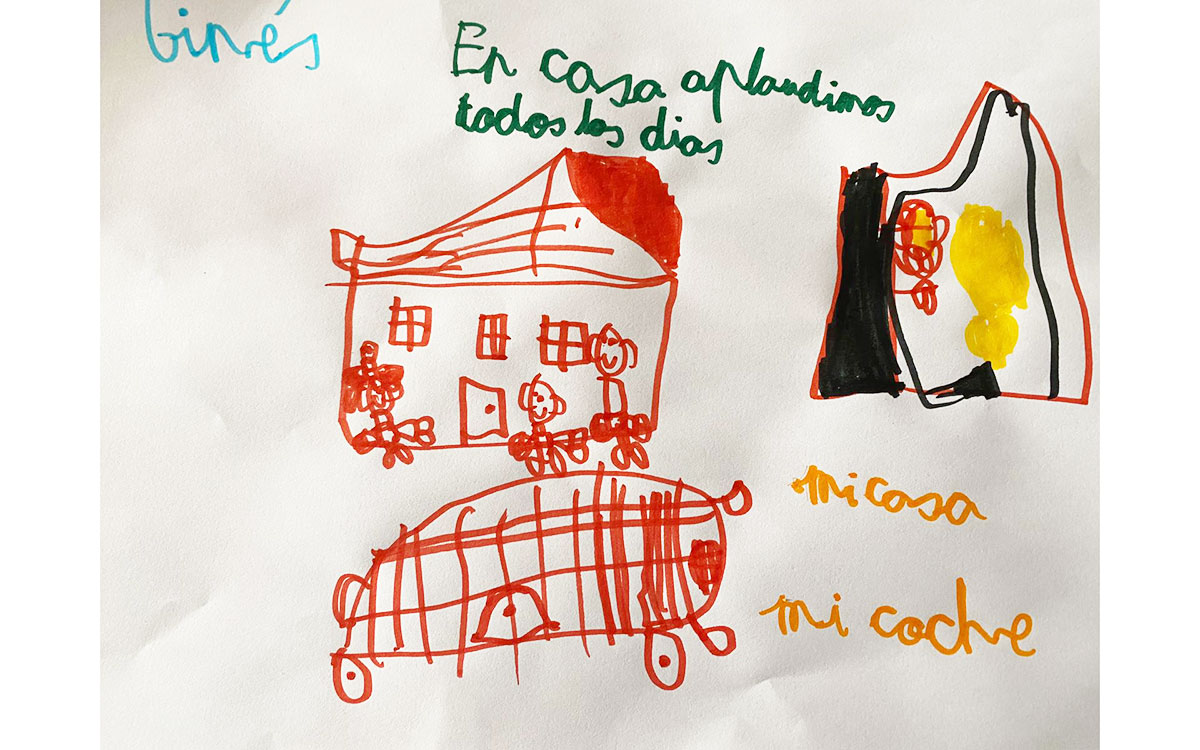 Ginés
En casa aplaudimos
todos los dias
mi casa
mi coche